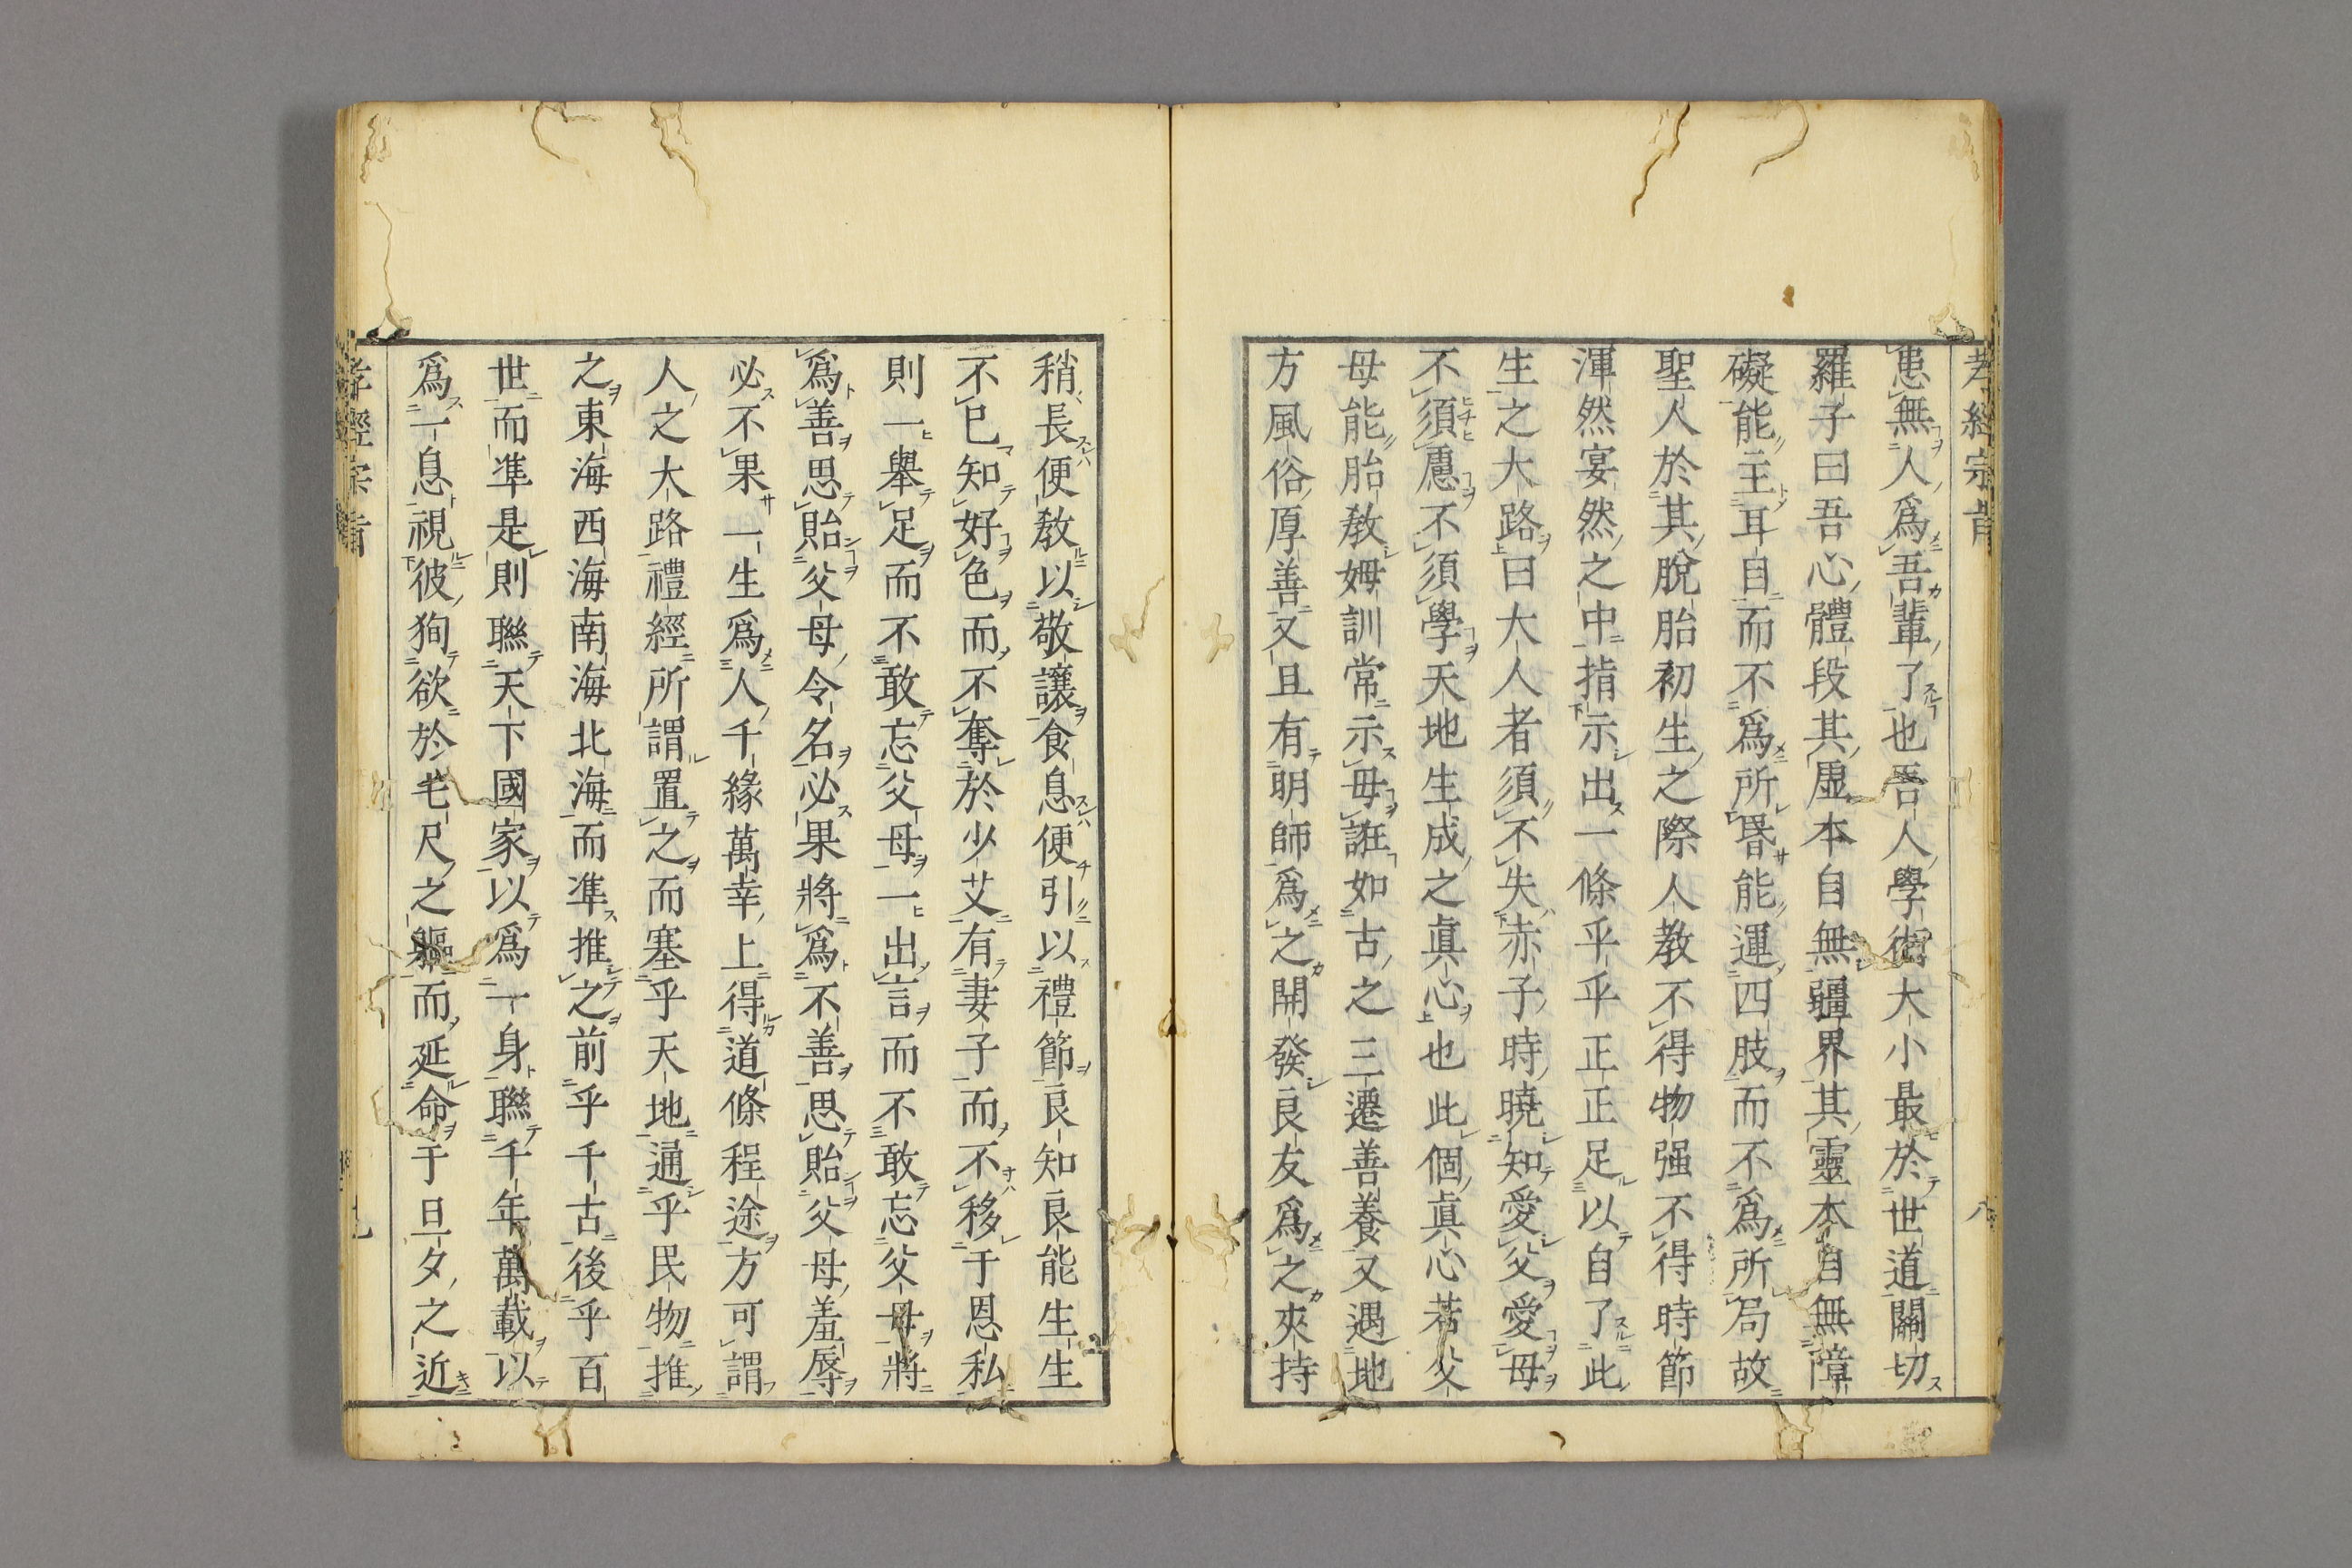 孝經宗旨
八
患無人爲吾輩了也吾人學術大小最於世道關切
羅子曰吾心體段其虛本自無疆界其靈本自無障
礙能主耳目而不爲所昬能運四肢而不爲所局故
聖人於其脫胎初生之際人教不得物强不得時節
渾然宴然之中指示出一條平平正正足以自了此
生之大路曰大人者須不失赤子時曉知愛父愛母
不須慮不須學天地生成之眞心也此個眞心若父
母能胎教姆訓常示毋誑如古之三遷善養又遇地
方風俗厚善又且有明師爲之開發良友爲之夾持
稍長便教以敬讓食息便引以禮節良知良能生生
不已知好色而不奪於少艾有妻子而不移于恩私
則一舉足而不敢忘父母一出言而不敢忘父母將
爲善思貽父母令名必果將爲不善思貽父母羞辱
必不果一生爲人千緣萬幸上得道條程途方可謂
人之大路禮經所謂置之而塞乎天地通乎民物推
之東海西海南海北海而準推之前乎千古後乎百
世而準是則聯天下國家以爲一身聯千年萬載以
爲一息視彼狥欲於七尺之軀而延命于旦夕之近
孝經宗旨
九